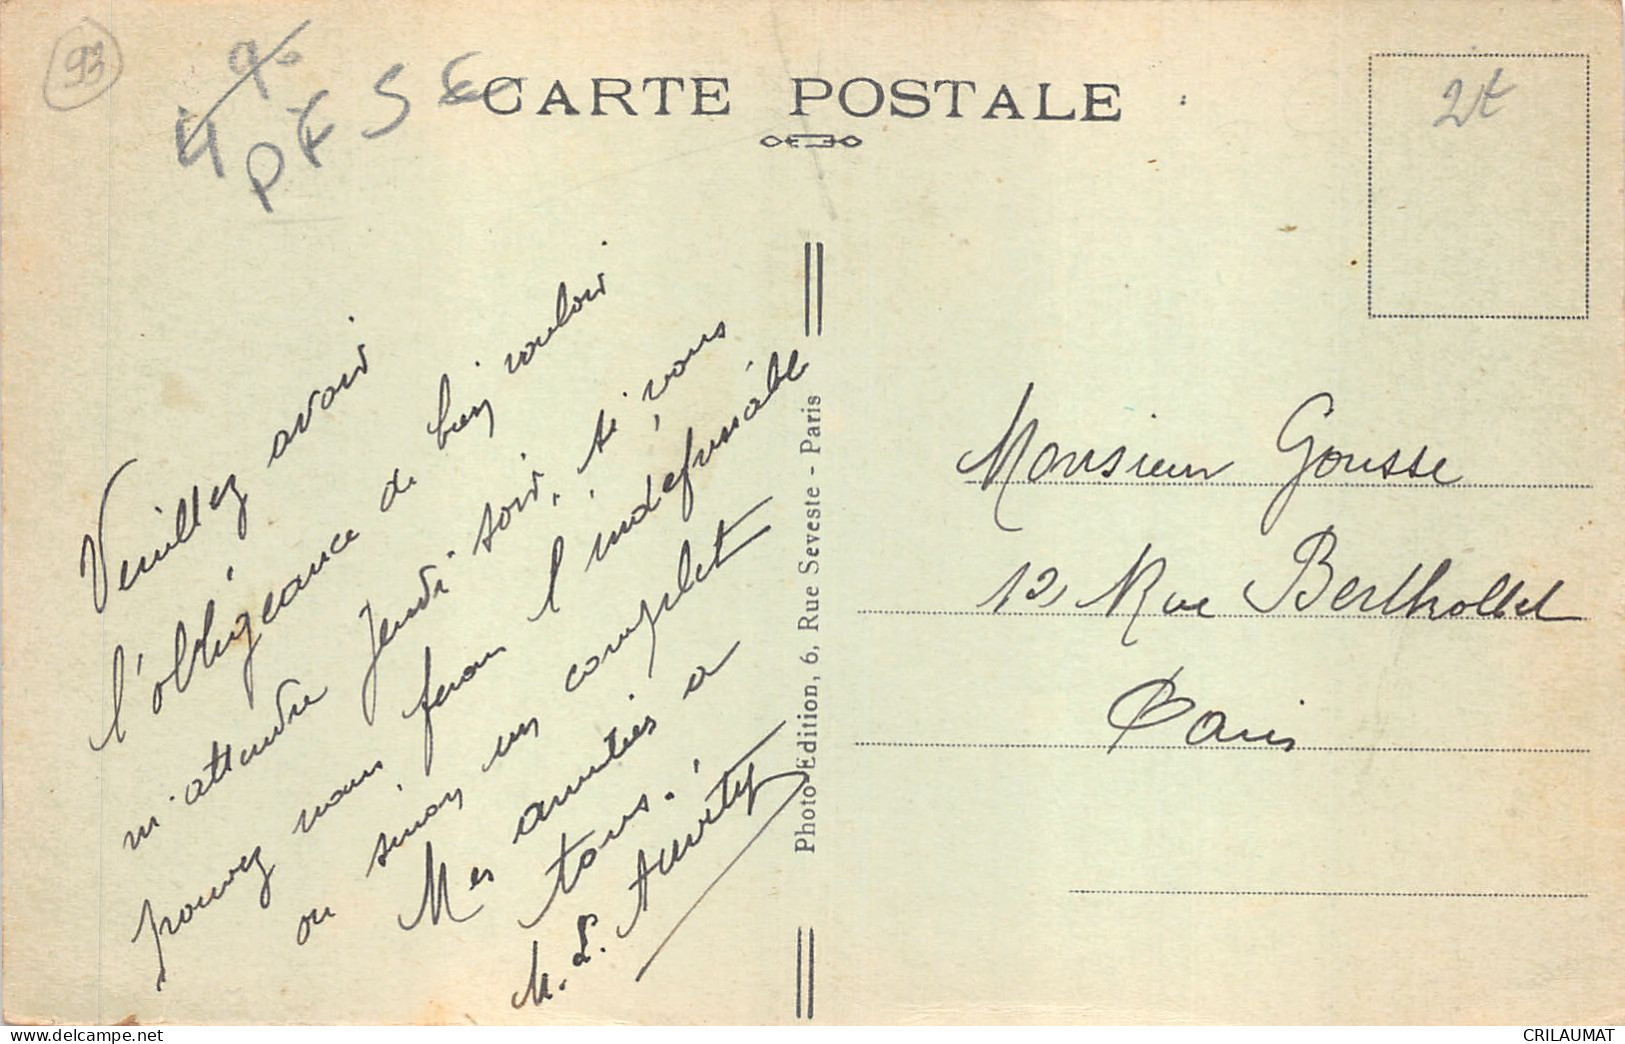 93
CARTE POSTALE
2€
Veuillez avoir
l'obligeance de bien vouloir
m'attendre Jeudi soir, si vous
pouvez nous ferons l'indéfrisable
ou sinon un complet
Mes amitiés a
tous.
M. L.
Photo-Edition, 6, Rue Seveste - Paris
Monsieur Gousse
12, Rue Berthollet
Paris
delcampe.net
CRILAUMAT